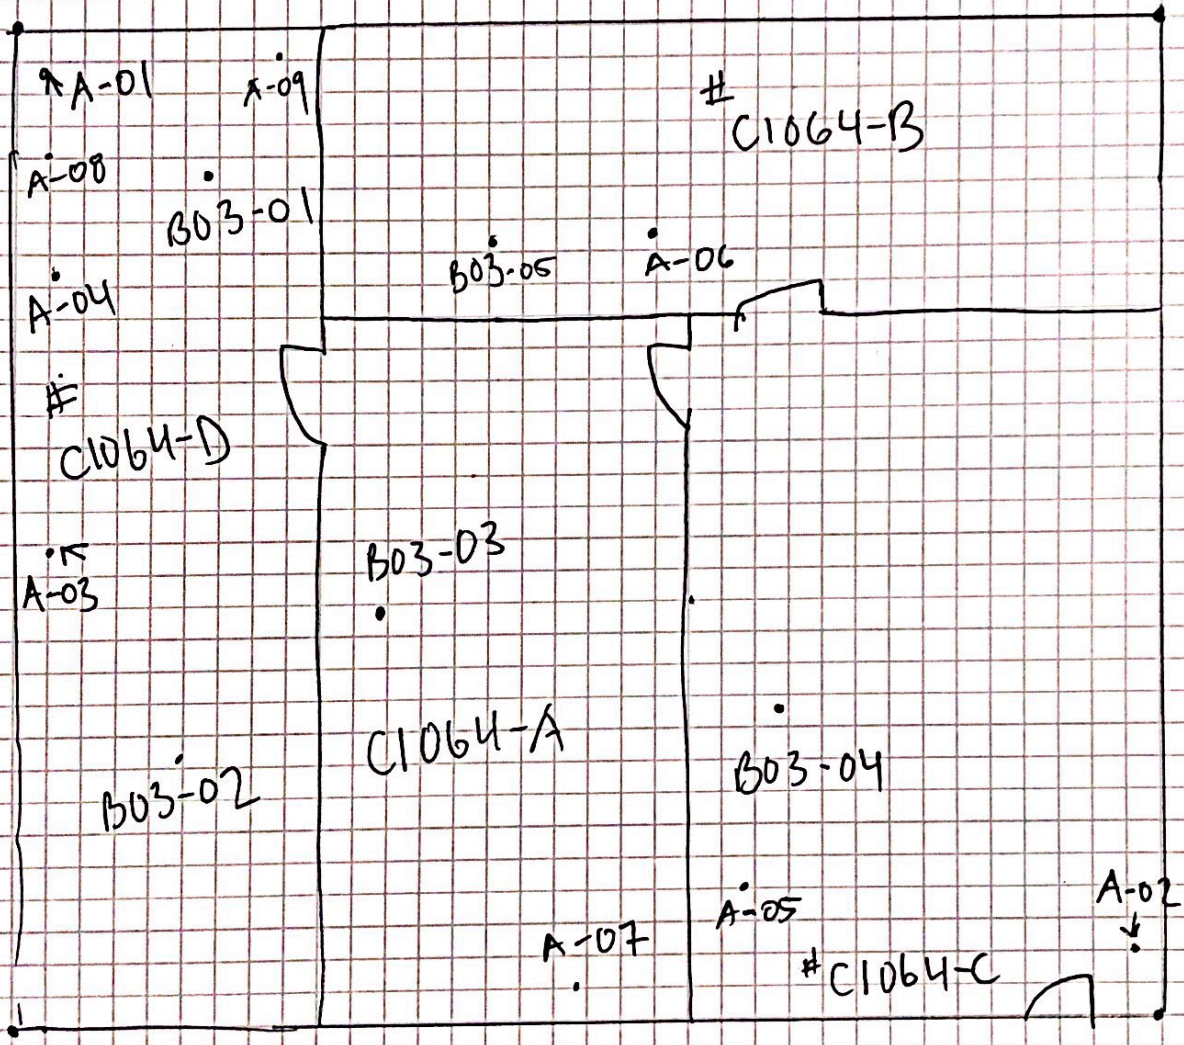 A-01
A-09
#
C1064-B
A-08
B03-01
B03-05
A-06
A-04
#
C1064-D
B03-03
A-03
C1064-A
B03-04
B03-02
A-05
A-02
A-07
# C1064-C